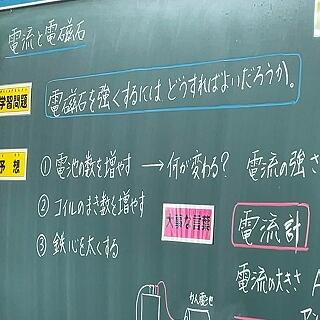 電流と電磁石
学習問題
電磁石を強くするには どうすればよいだろうか。
予想
① 電池の数を増やす → 何が変わる? 電流の強さ
② コイルのまき数を増やす
③ 鉄心を太くする
大事な言葉
電流計
電流の大きさ A
かん電池